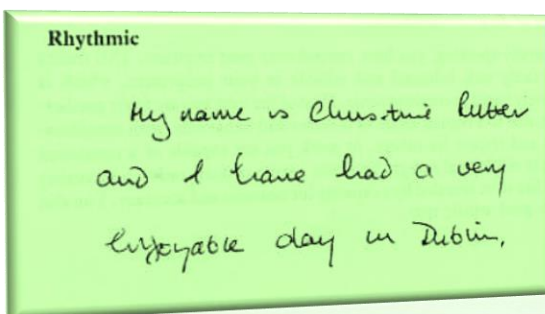 Rhythmic
My name is Christine Rutter
and I have had a very
enjoyable day in Dublin.